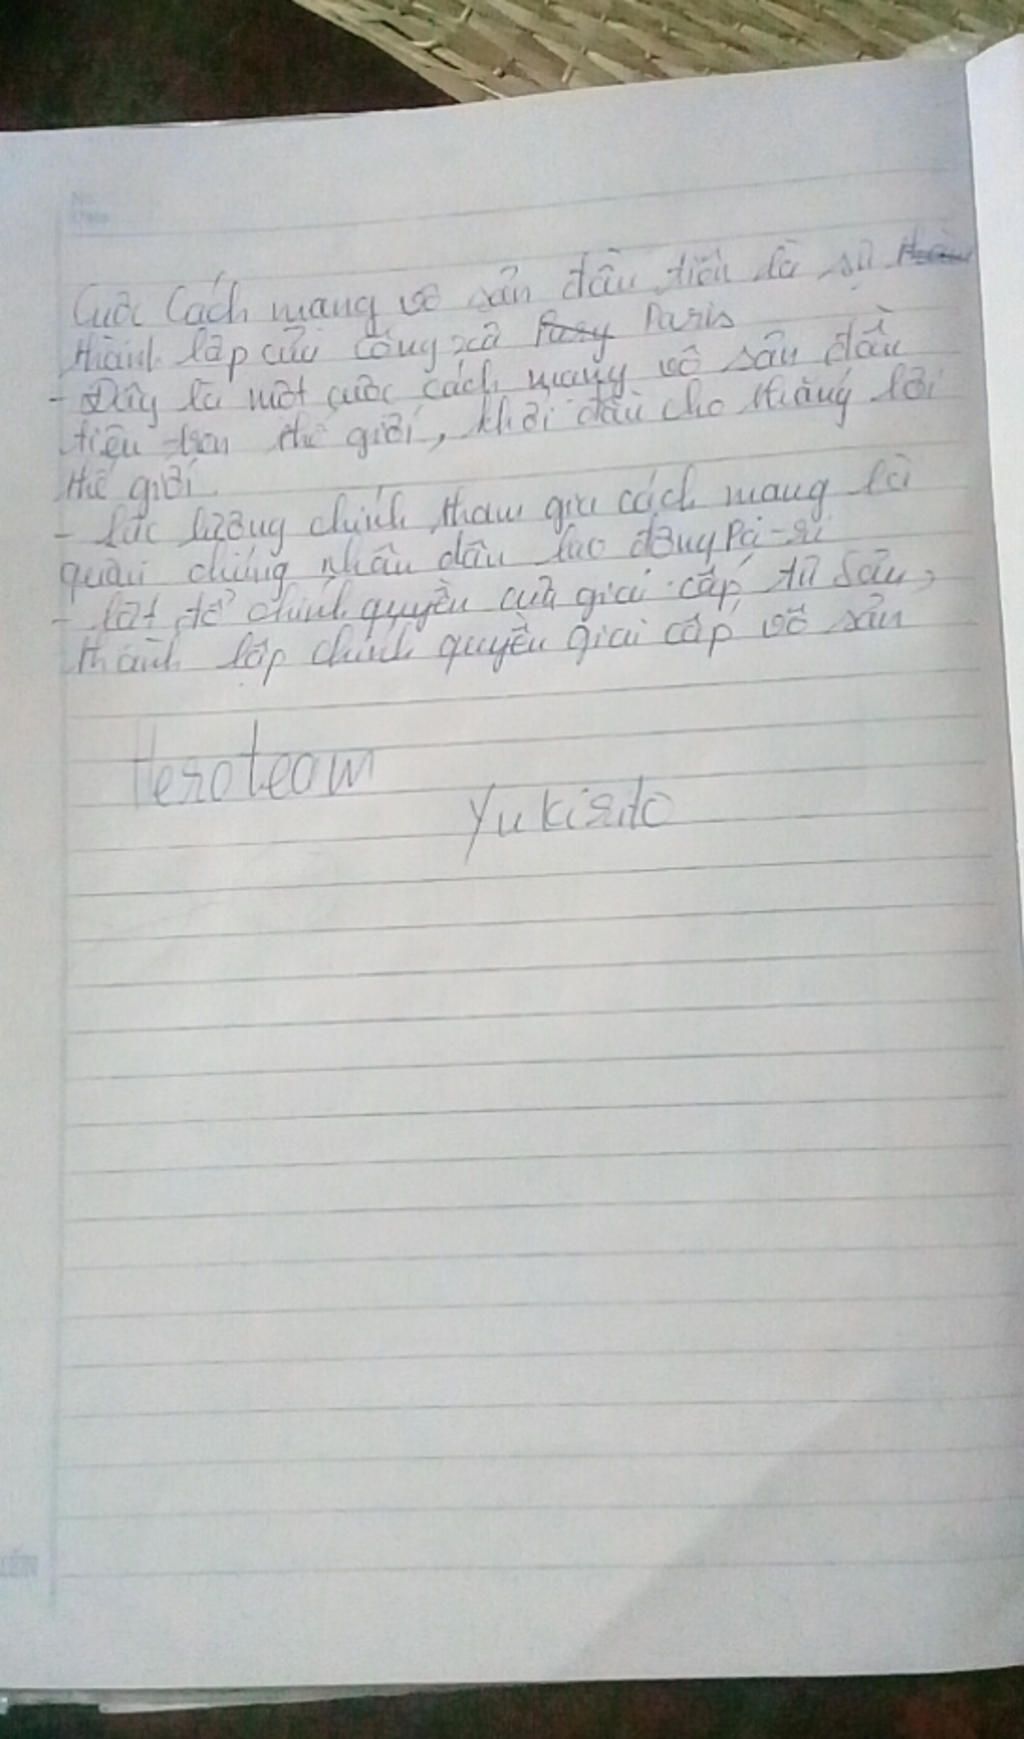 No.
Date
Cuộc Cách mạng vô sản đầu tiên là sự
thành lập của công xã Pary Paris
- Đây là một cuộc cách mạng vô sản đầu
tiên trên thế giới, khởi đầu cho thắng lợi
thế giới
- Lực lượng chính tham gia cách mạng là
quần chúng nhân dân lao động Pa-ri
- lật đổ chính quyền của giai cấp tư sản,
thành lập chính quyền giai cấp vô sản
Heroteam
Yukirito